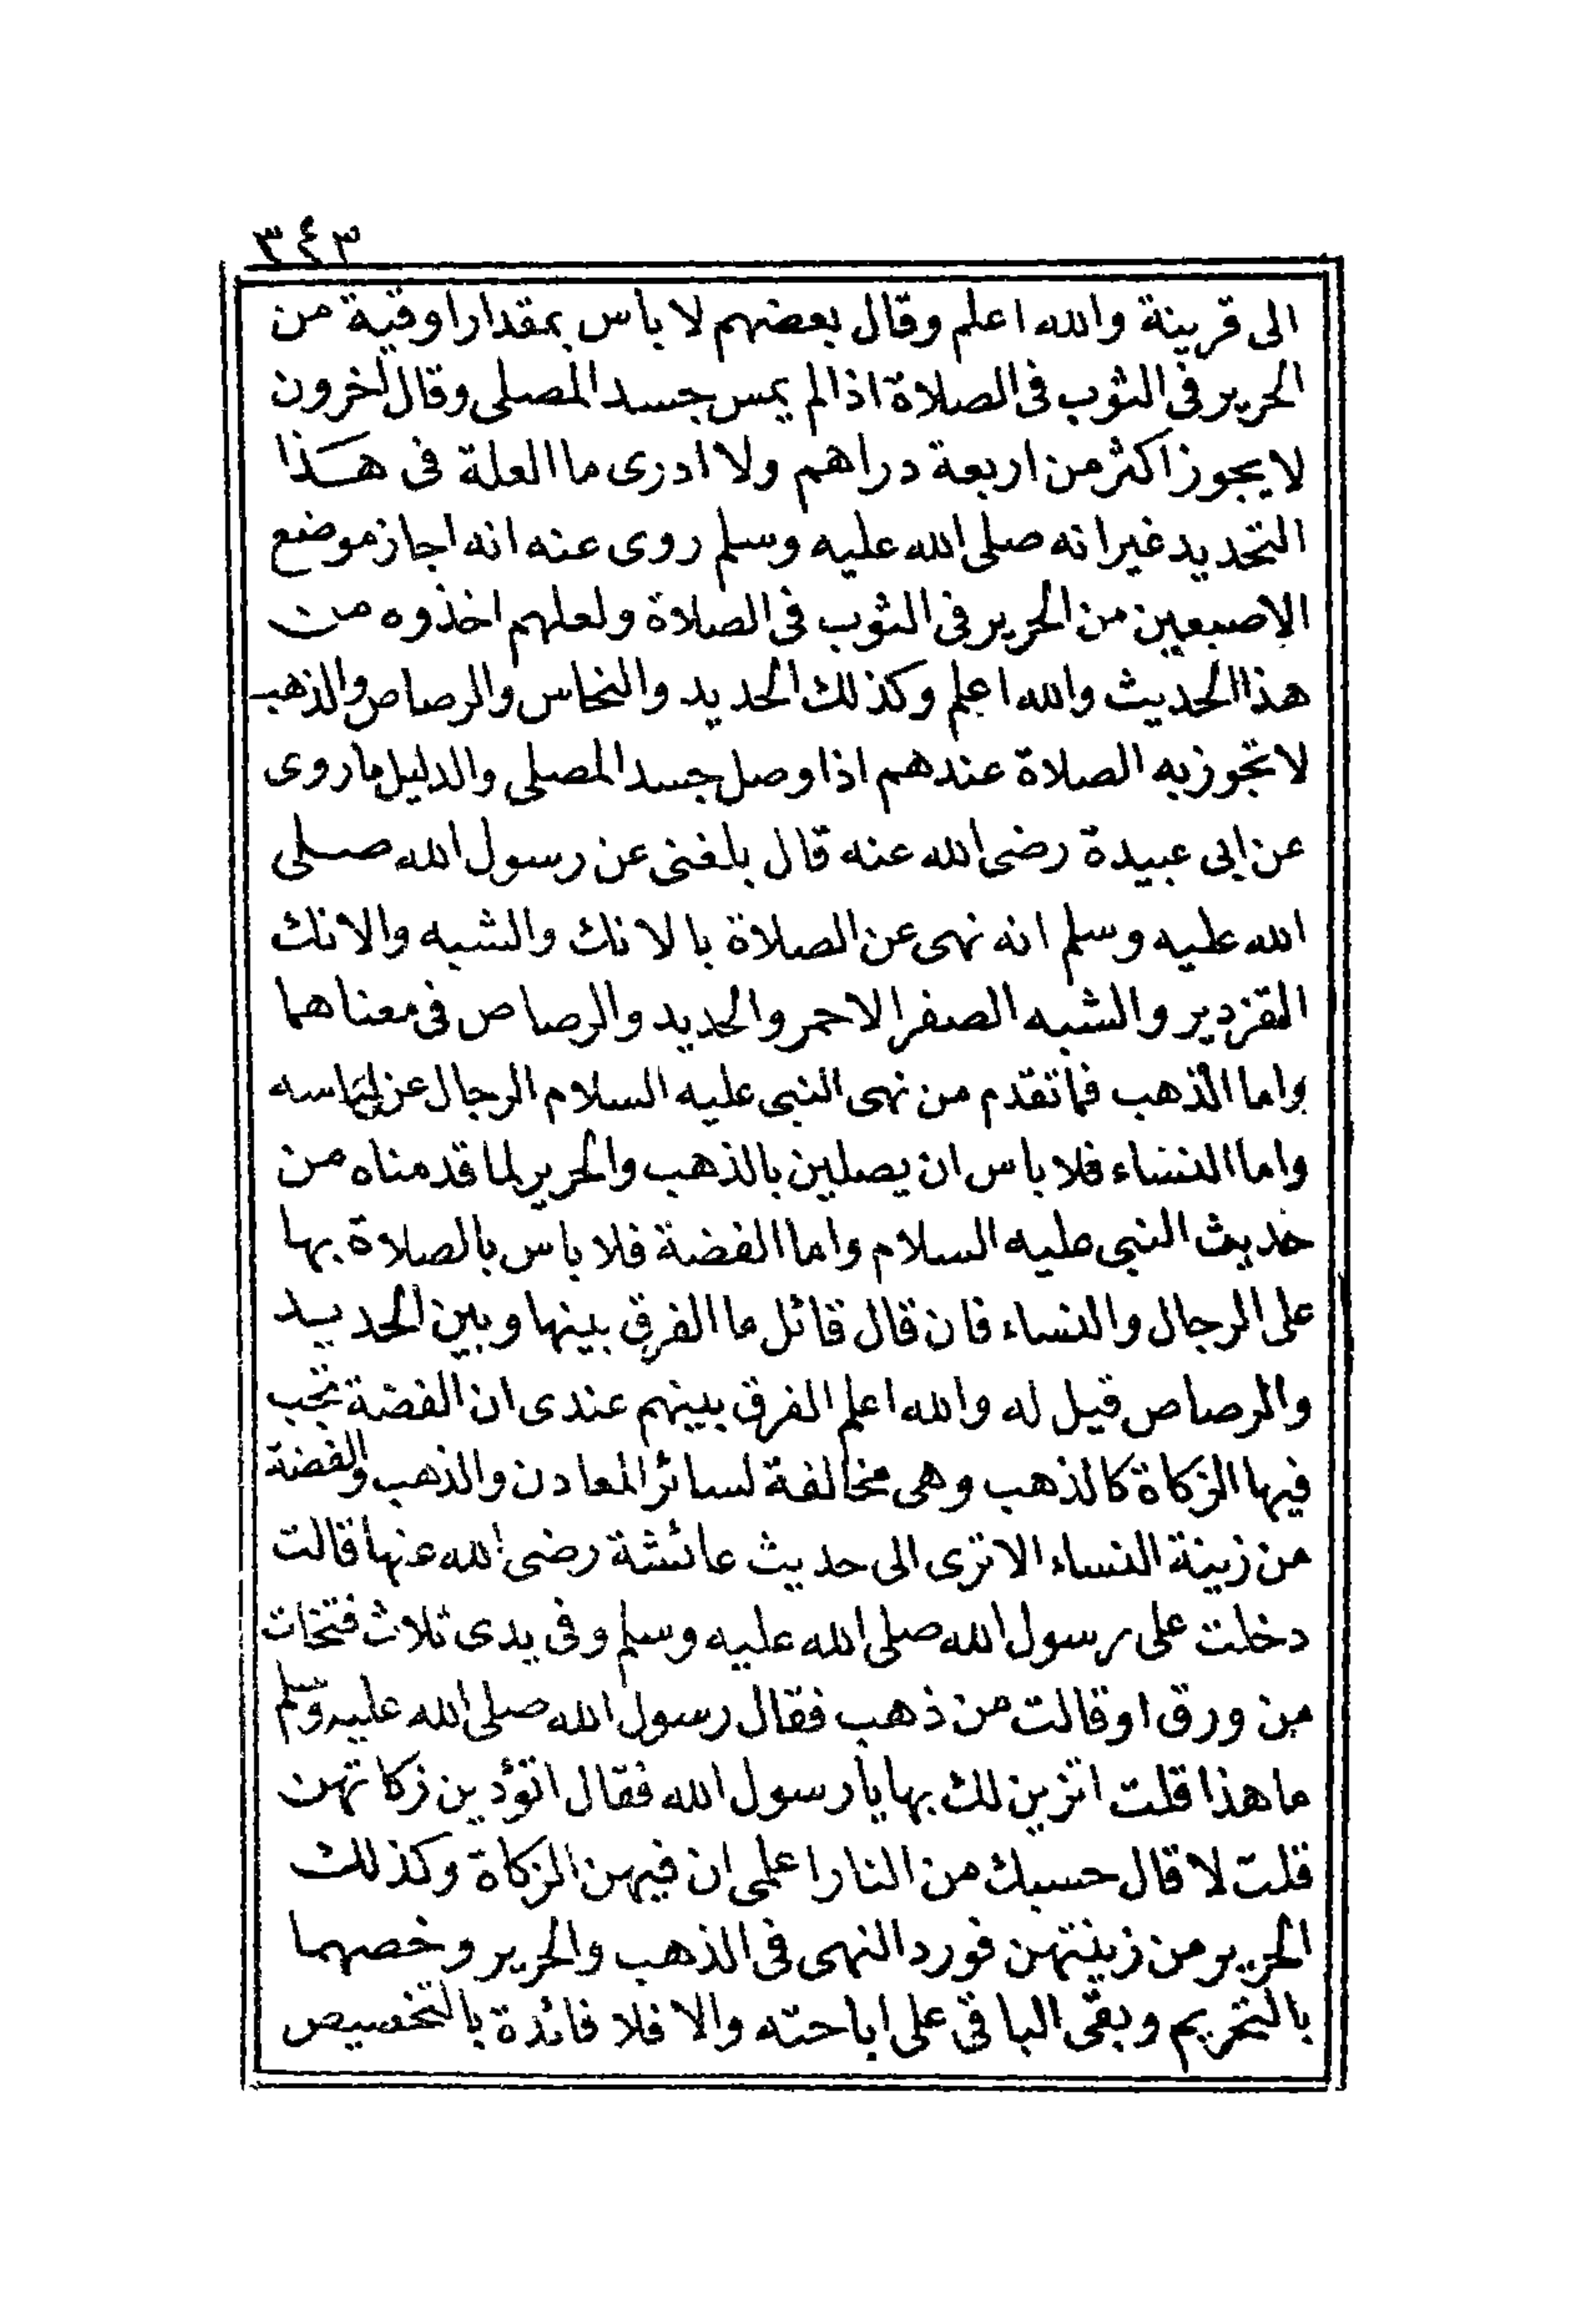 ٣٤٣
الى قرينة والله اعلم وقال بعضهم لا باس بمقدار اوقية من
الحرير فى الثوب فى الصلاة اذا لم يمس جسد المصلى وقال آخرون
لا يجوز اكثر من اربعة دراهم ولا ادرى ما العلة فى هذا
التحديد غير انه صلى الله عليه وسلم روى عنه انه اجاز موضع
الاصبعين من الحرير فى الثوب فى الصلاة ولعلهم اخذوه من
هذا الحديث والله اعلم وكذلك الحديد والنحاس والرصاص والذهب
لا تجوز به الصلاة عندهم اذا وصل جسد المصلى والدليل ما روى
عن ابى عبيدة رضى الله عنه قال بلغنى عن رسول الله صلى
الله عليه وسلم انه نهى عن الصلاة بالانك والشبه والانك
القزدير والشبه الصفر الاحمر والحديد والرصاص فى معناهما
واما الذهب فما تقدم من نهى النبى عليه السلام الرجال عن لباسه
واما النساء فلا باس ان يصلين بالذهب والحرير لما قدمناه من
حديث النبى عليه السلام واما الفضة فلا باس بالصلاة بها
على الرجال والنساء فان قال قائل ما الفرق بينها وبين الحديد
والرصاص قيل له والله اعلم الفرق بينهم عندى ان الفضة تجب
فيها الزكاة كالذهب وهى مخالفة لسائر المعادن والذهب والفضة
من زينة النساء الا ترى الى حديث عائشة رضى الله عنها قالت
دخلت على رسول الله صلى الله عليه وسلم وفى يدى ثلاث فتخات
من ورق او قالت من ذهب فقال رسول الله صلى الله عليه وسلم
ما هذا قلت اتزين لك بها يا رسول الله فقال اتؤدين زكاتهن
قلت لا قال حسبك من النار اعلمى ان فيهن الزكاة وكذلك
الحرير من زينتهن فورد النهى فى الذهب والحرير وخصهما
بالتحريم وبقى الباقى على اباحته والا فلا فائدة بالتخصيص